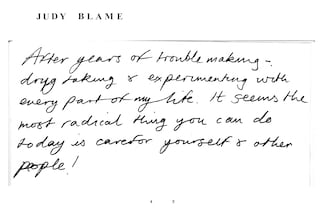 JUDY BLAME
After years of trouble making -
drug taking & experimenting with
every part of my life. It seems the
most radical thing you can do
today is care for yourself & other
people!